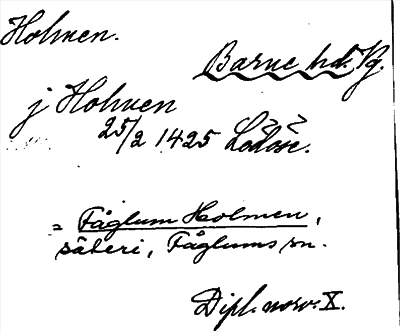 Holmen.
Barne hd. Vg.
j Holmen
25/2 1425 Lödöse.
= Fåglum Holmen,
säteri, Fåglums sn.
Dipl. norv. X.